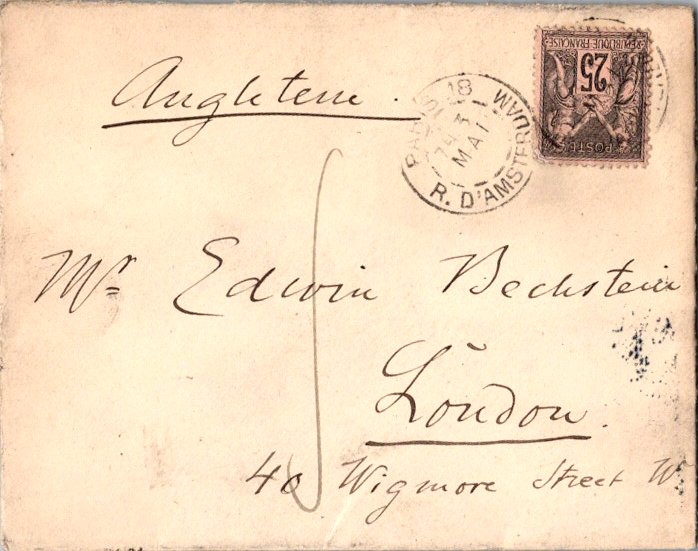 Angleterre
PARIS 18
MAI
R. D'AMSTERDAM
RÉPUBLIQUE FRANÇAISE
25
POSTES
Mr Edwin Bechstein
London.
40 Wigmore Street W